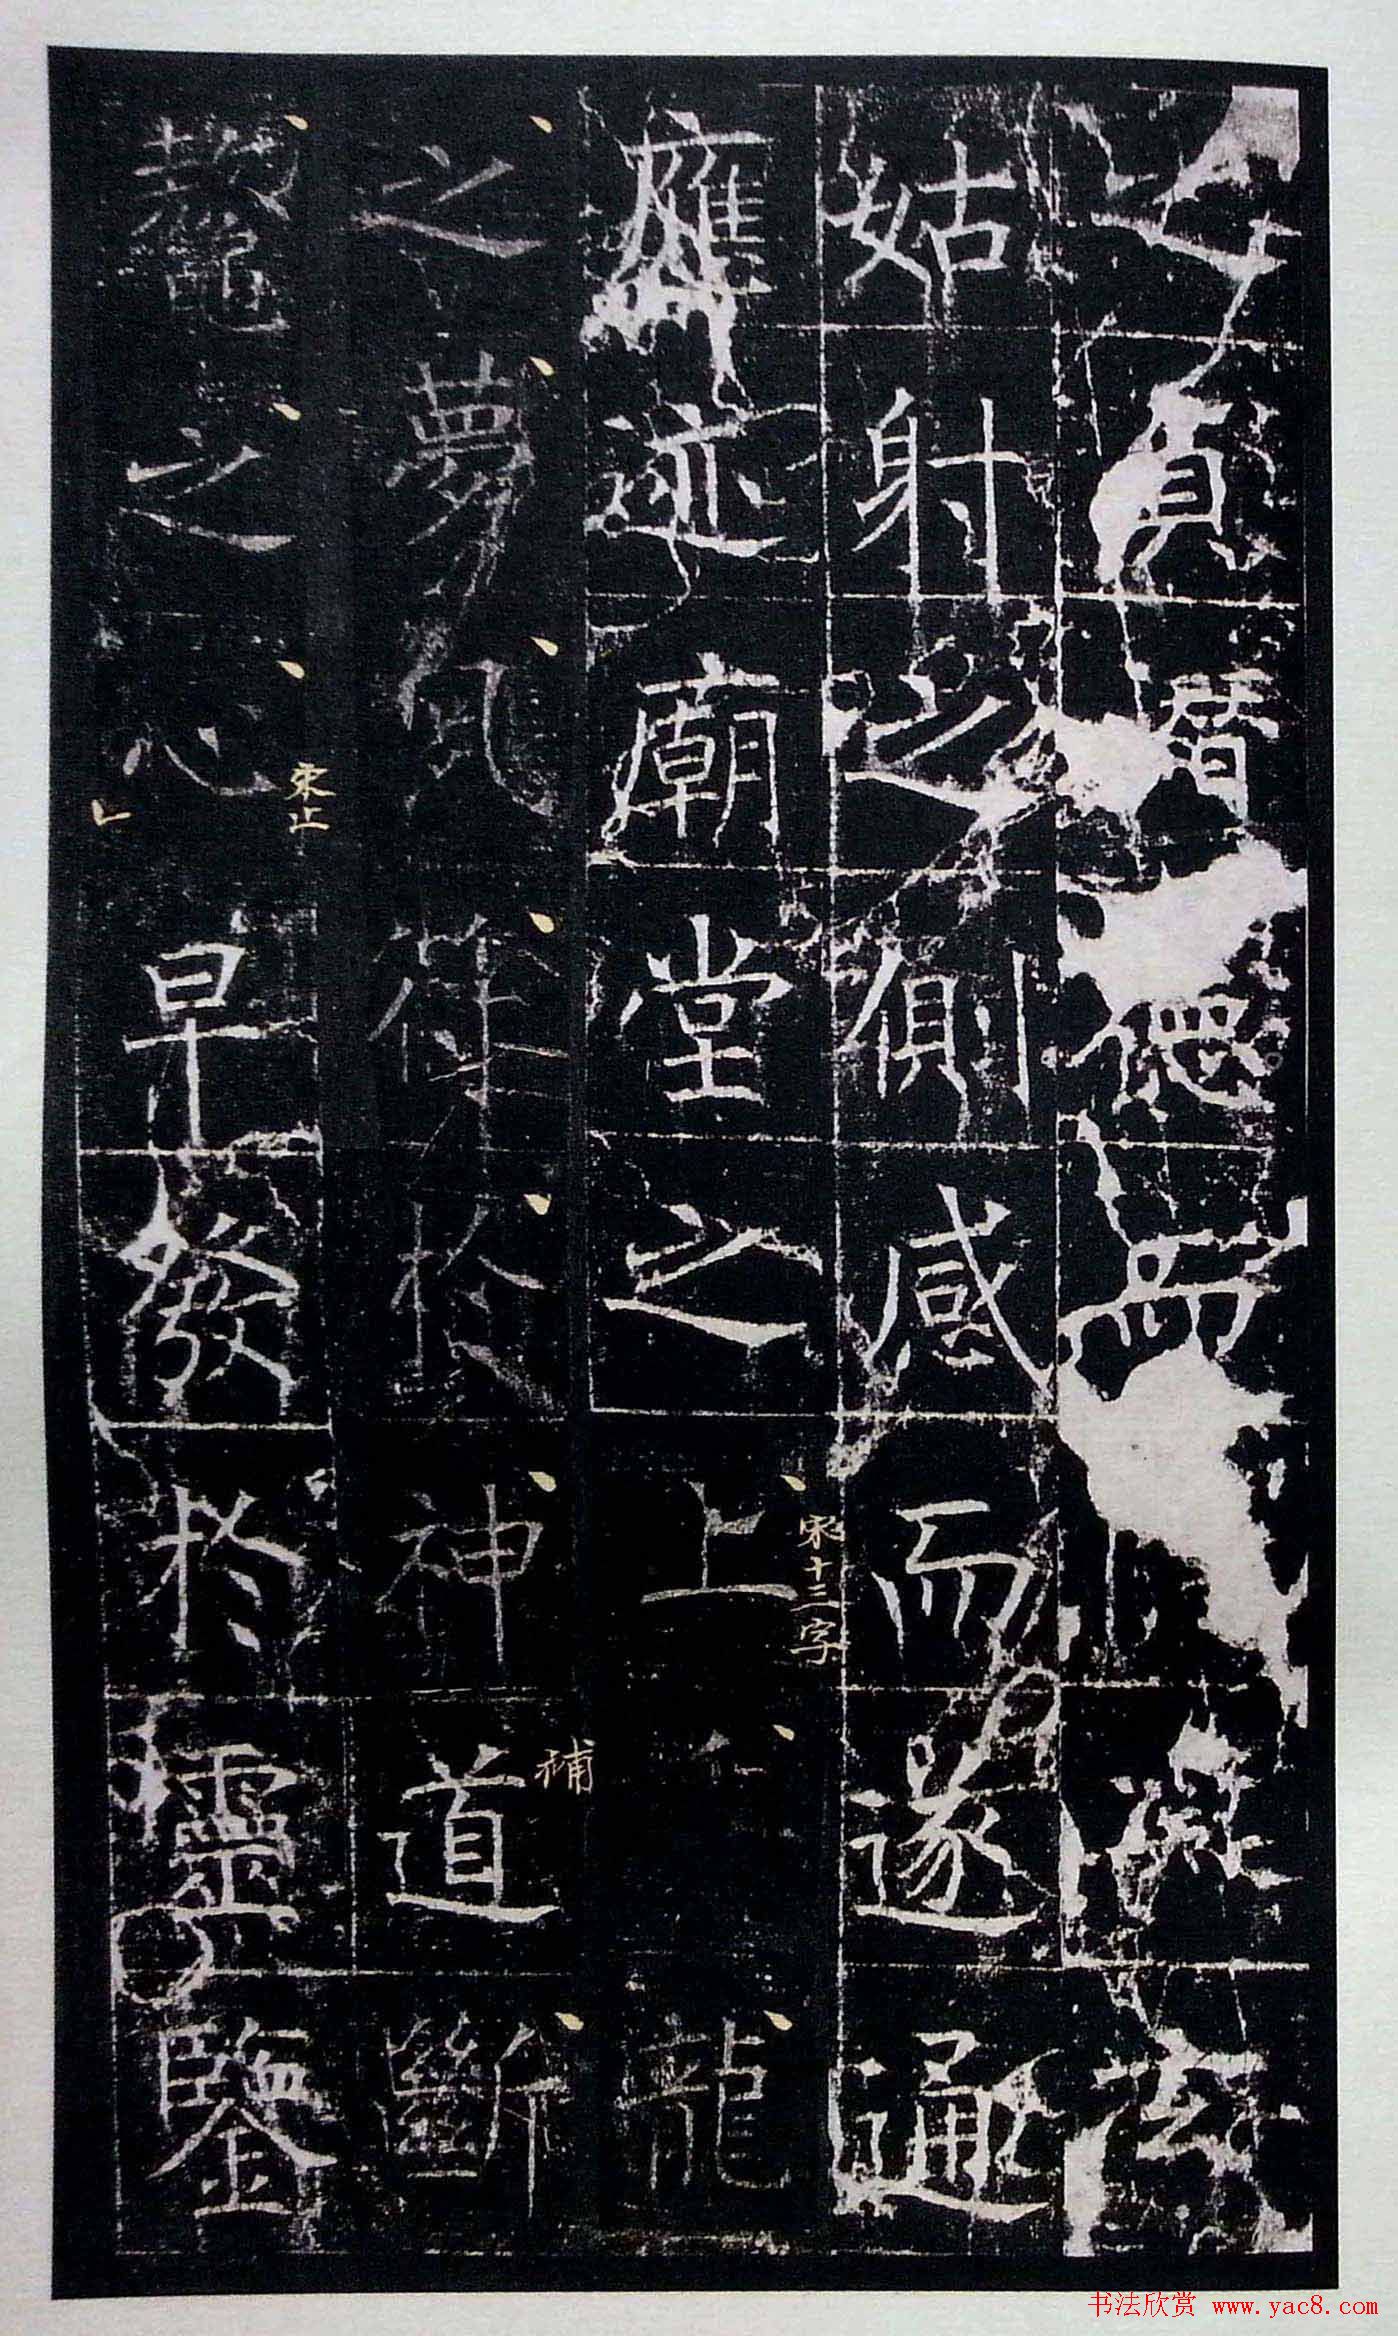 之貞德而
姑射之側感而遂通
應迹廟堂之上龍
之夢見祥於神道斷
鼇之心早發於靈鑒
宋十三字
補
宋止
书法欣赏 www.yac8.com